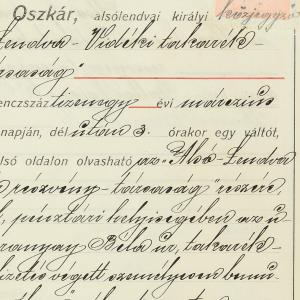 Oszkár, alsólendvai királyi közjegyző
Lendva-Vidéki takarék-
társaság"
lenczszáz tizenegy évi márczius
napján, dél után 3. órakor egy váltót,
lső oldalon olvasható az "Alsó-Lendva
részvény-társaság" részere,
pénztári helyiségében az ú
aranyay Béla úr, takarék-
fizetés végett személyesen bemu-